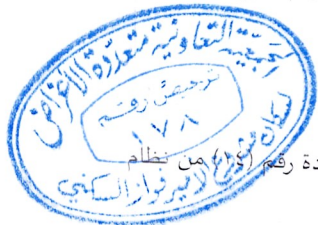 الجمعية التعاونية متعددة الأغراض
ترخيص رقم
١٧٨
لسكان مشروع الأمير فواز السكني
دة رقم (١٤) من نظام